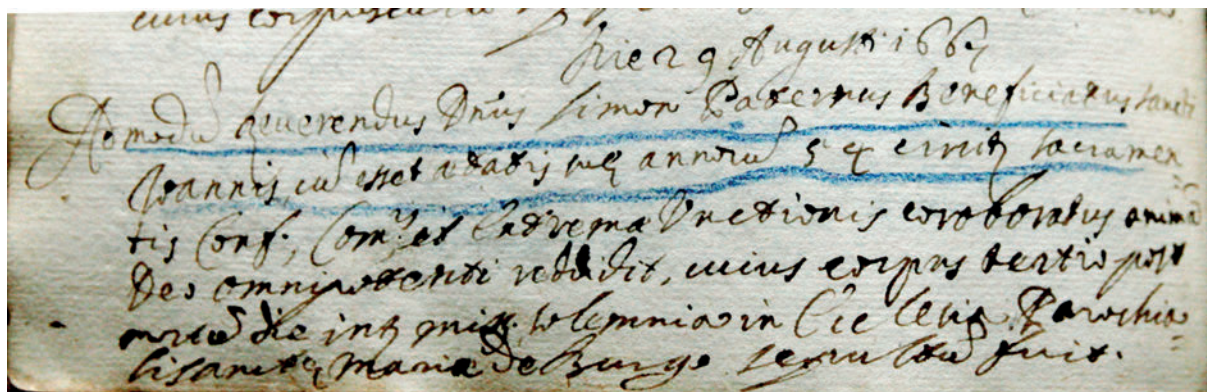 cuius corpus
Die 29 Augusti 166
Admodũ Reuerendus Dñus Simon Paternus Beneficiatus sancti
Joannis, cũ esset ætatis suę annorũ 54 sacramen
tis Conf., Com: et Extremæ Unctionis coroboratus animã
Deo omnipotenti reddidit, cuius corpus tertio post
mortẽ die int missę solemnia in Ecclesia Parochia
li sanctę Mariæ de Burgo sepultũ fuit.